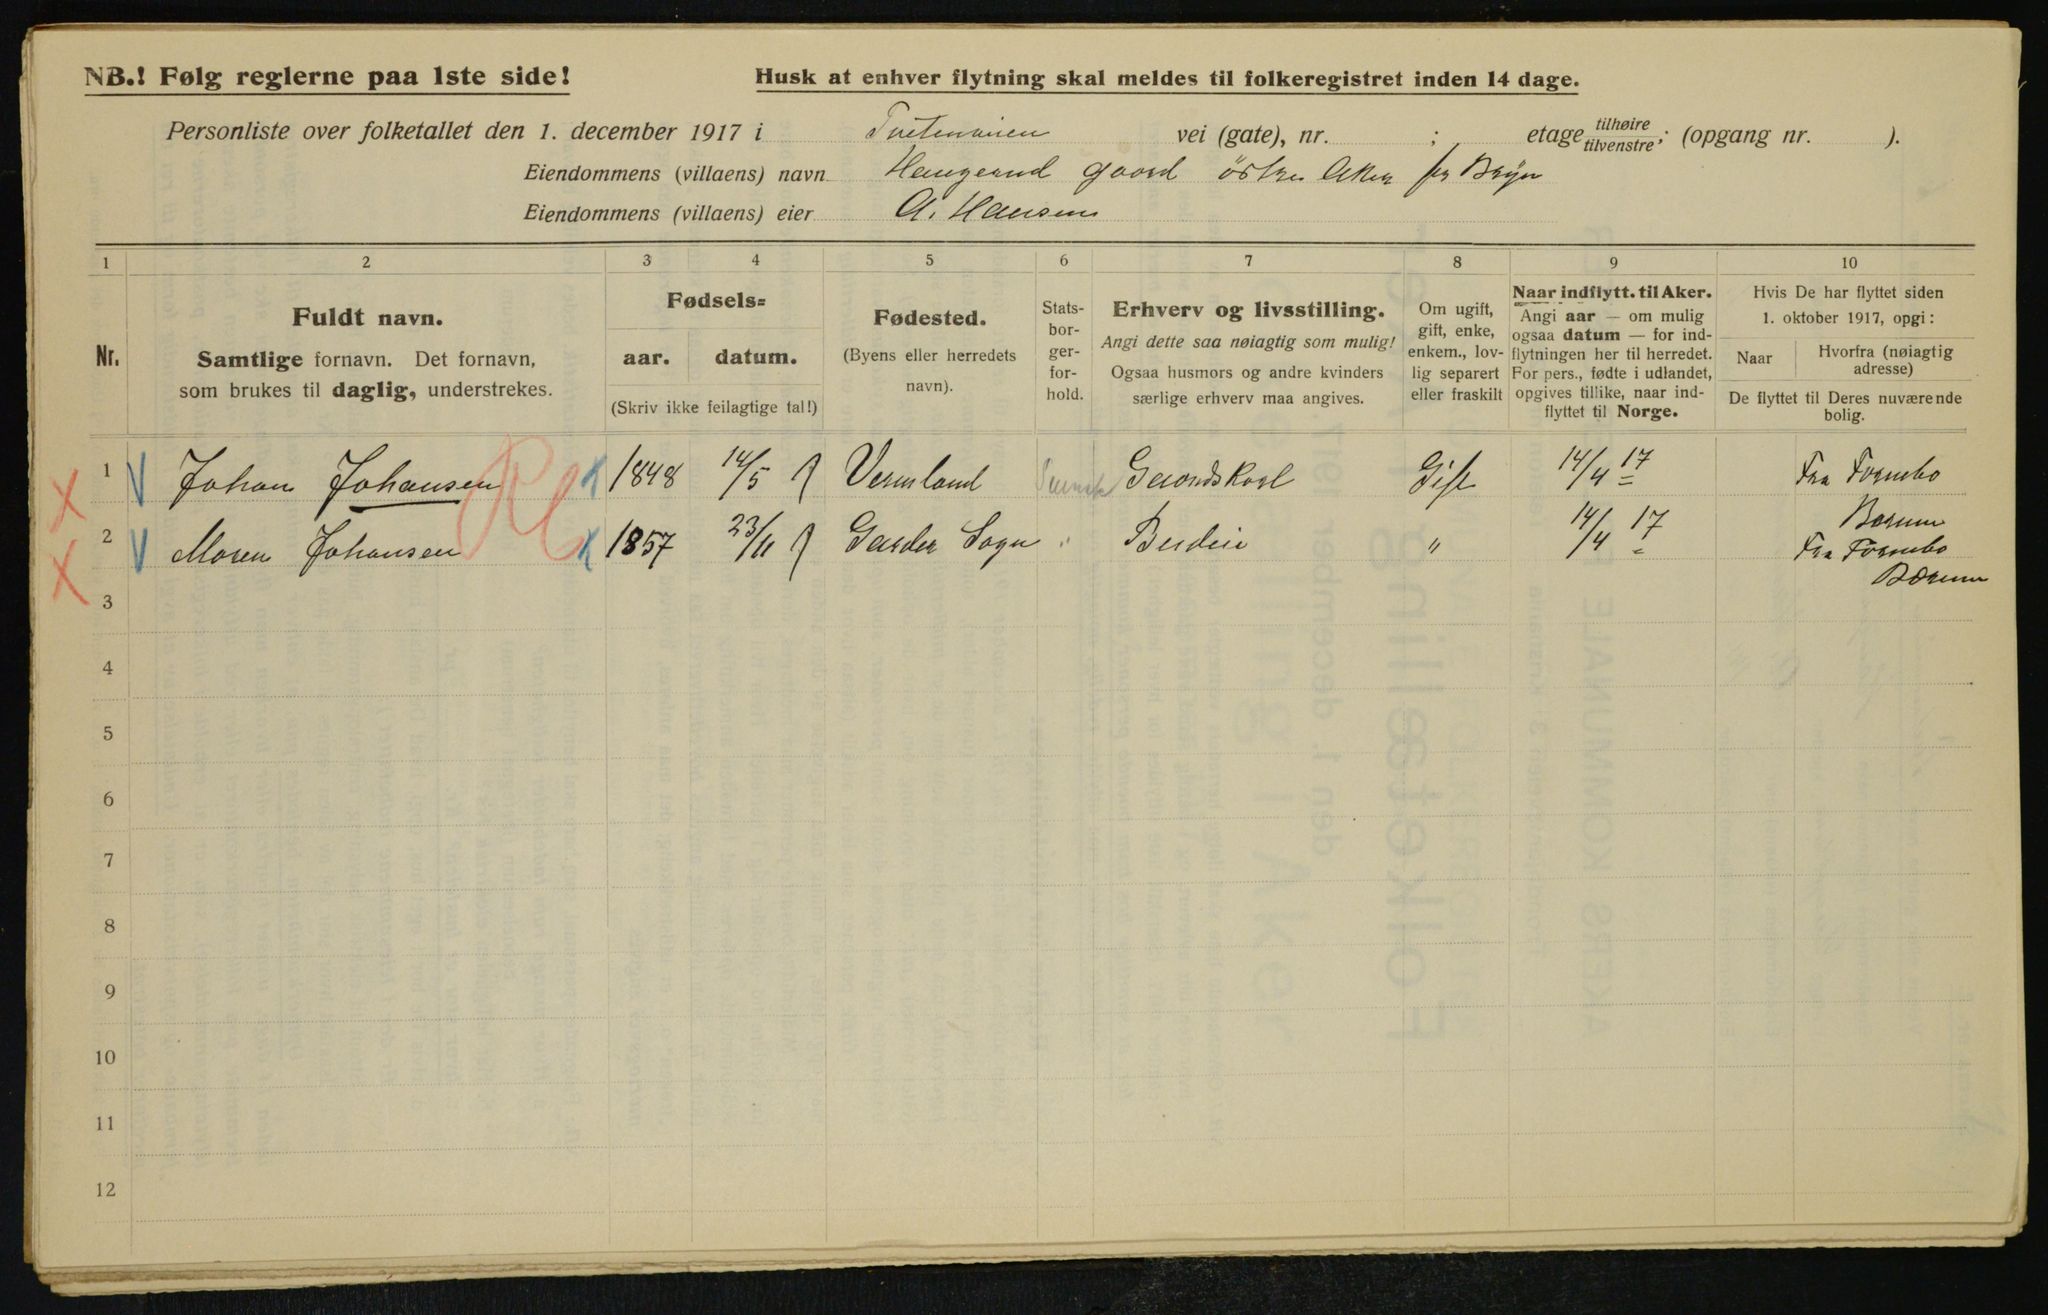 NB.! Følg reglerne paa 1ste side!
Husk at enhver flytning skal meldes til folkeregistret inden 14 dage.
Personliste over folketallet den 1. december 1917 i Tvetenveien vei (gate), nr. ; etage tilhøire/tilvenstre; (opgang nr. ).
Eiendommens (villaens) navn Haugerud gaard östre Aker pr Bryn
Eiendommens (villaens) eier A. Hansen
1 2 3 4 5 6 7 8 9 10
Nr.
Fuldt navn.
Samtlige fornavn. Det fornavn,
som brukes til daglig, understrekes.
Fødsels=
aar. datum.
(Skriv ikke feilagtige tal!)
Fødested.
(Byens eller herredets
navn).
Stats-
bor-
ger-
for-
hold.
Erhverv og livsstilling.
Angi dette saa nøiagtig som mulig!
Ogsaa husmors og andre kvinders
særlige erhverv maa angives.
Om ugift,
gift, enke,
enkem., lov-
lig separert
eller fraskilt
Naar indflytt. til Aker.
Angi aar — om mulig
ogsaa datum — for ind-
flytningen her til herredet.
For pers., fødte i udlandet,
opgives tillike, naar ind-
flyttet til Norge.
Hvis De har flyttet siden
1. oktober 1917, opgi:
Naar
Hvorfra (nøiagtig
adresse)
De flyttet til Deres nuværende
bolig.
1 Johan Johansen 1848 14/5 Vermland Svensk Gaardskarl Gift 14/4 17 Fra Fornebo
Bærum
2 Maren Johansen 1857 23/11 Garder Sogn " Budeie " 14/4 17 Fra Fornebo
Bærum
3
4
5
6
7
8
9
10
11
12